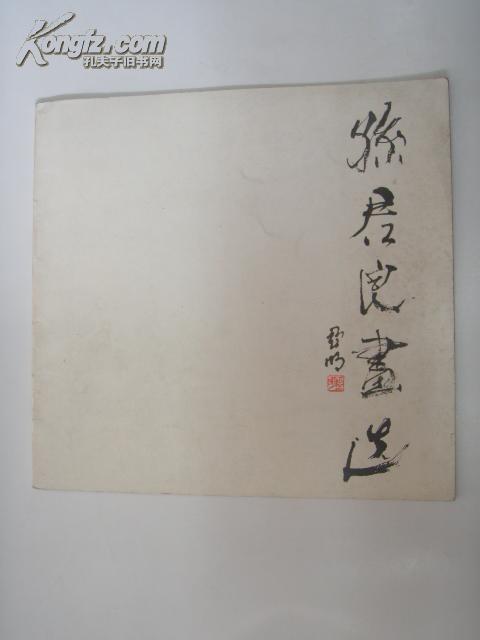 Kongfz.com
孔夫子旧书网
孫君良畫选
亞明